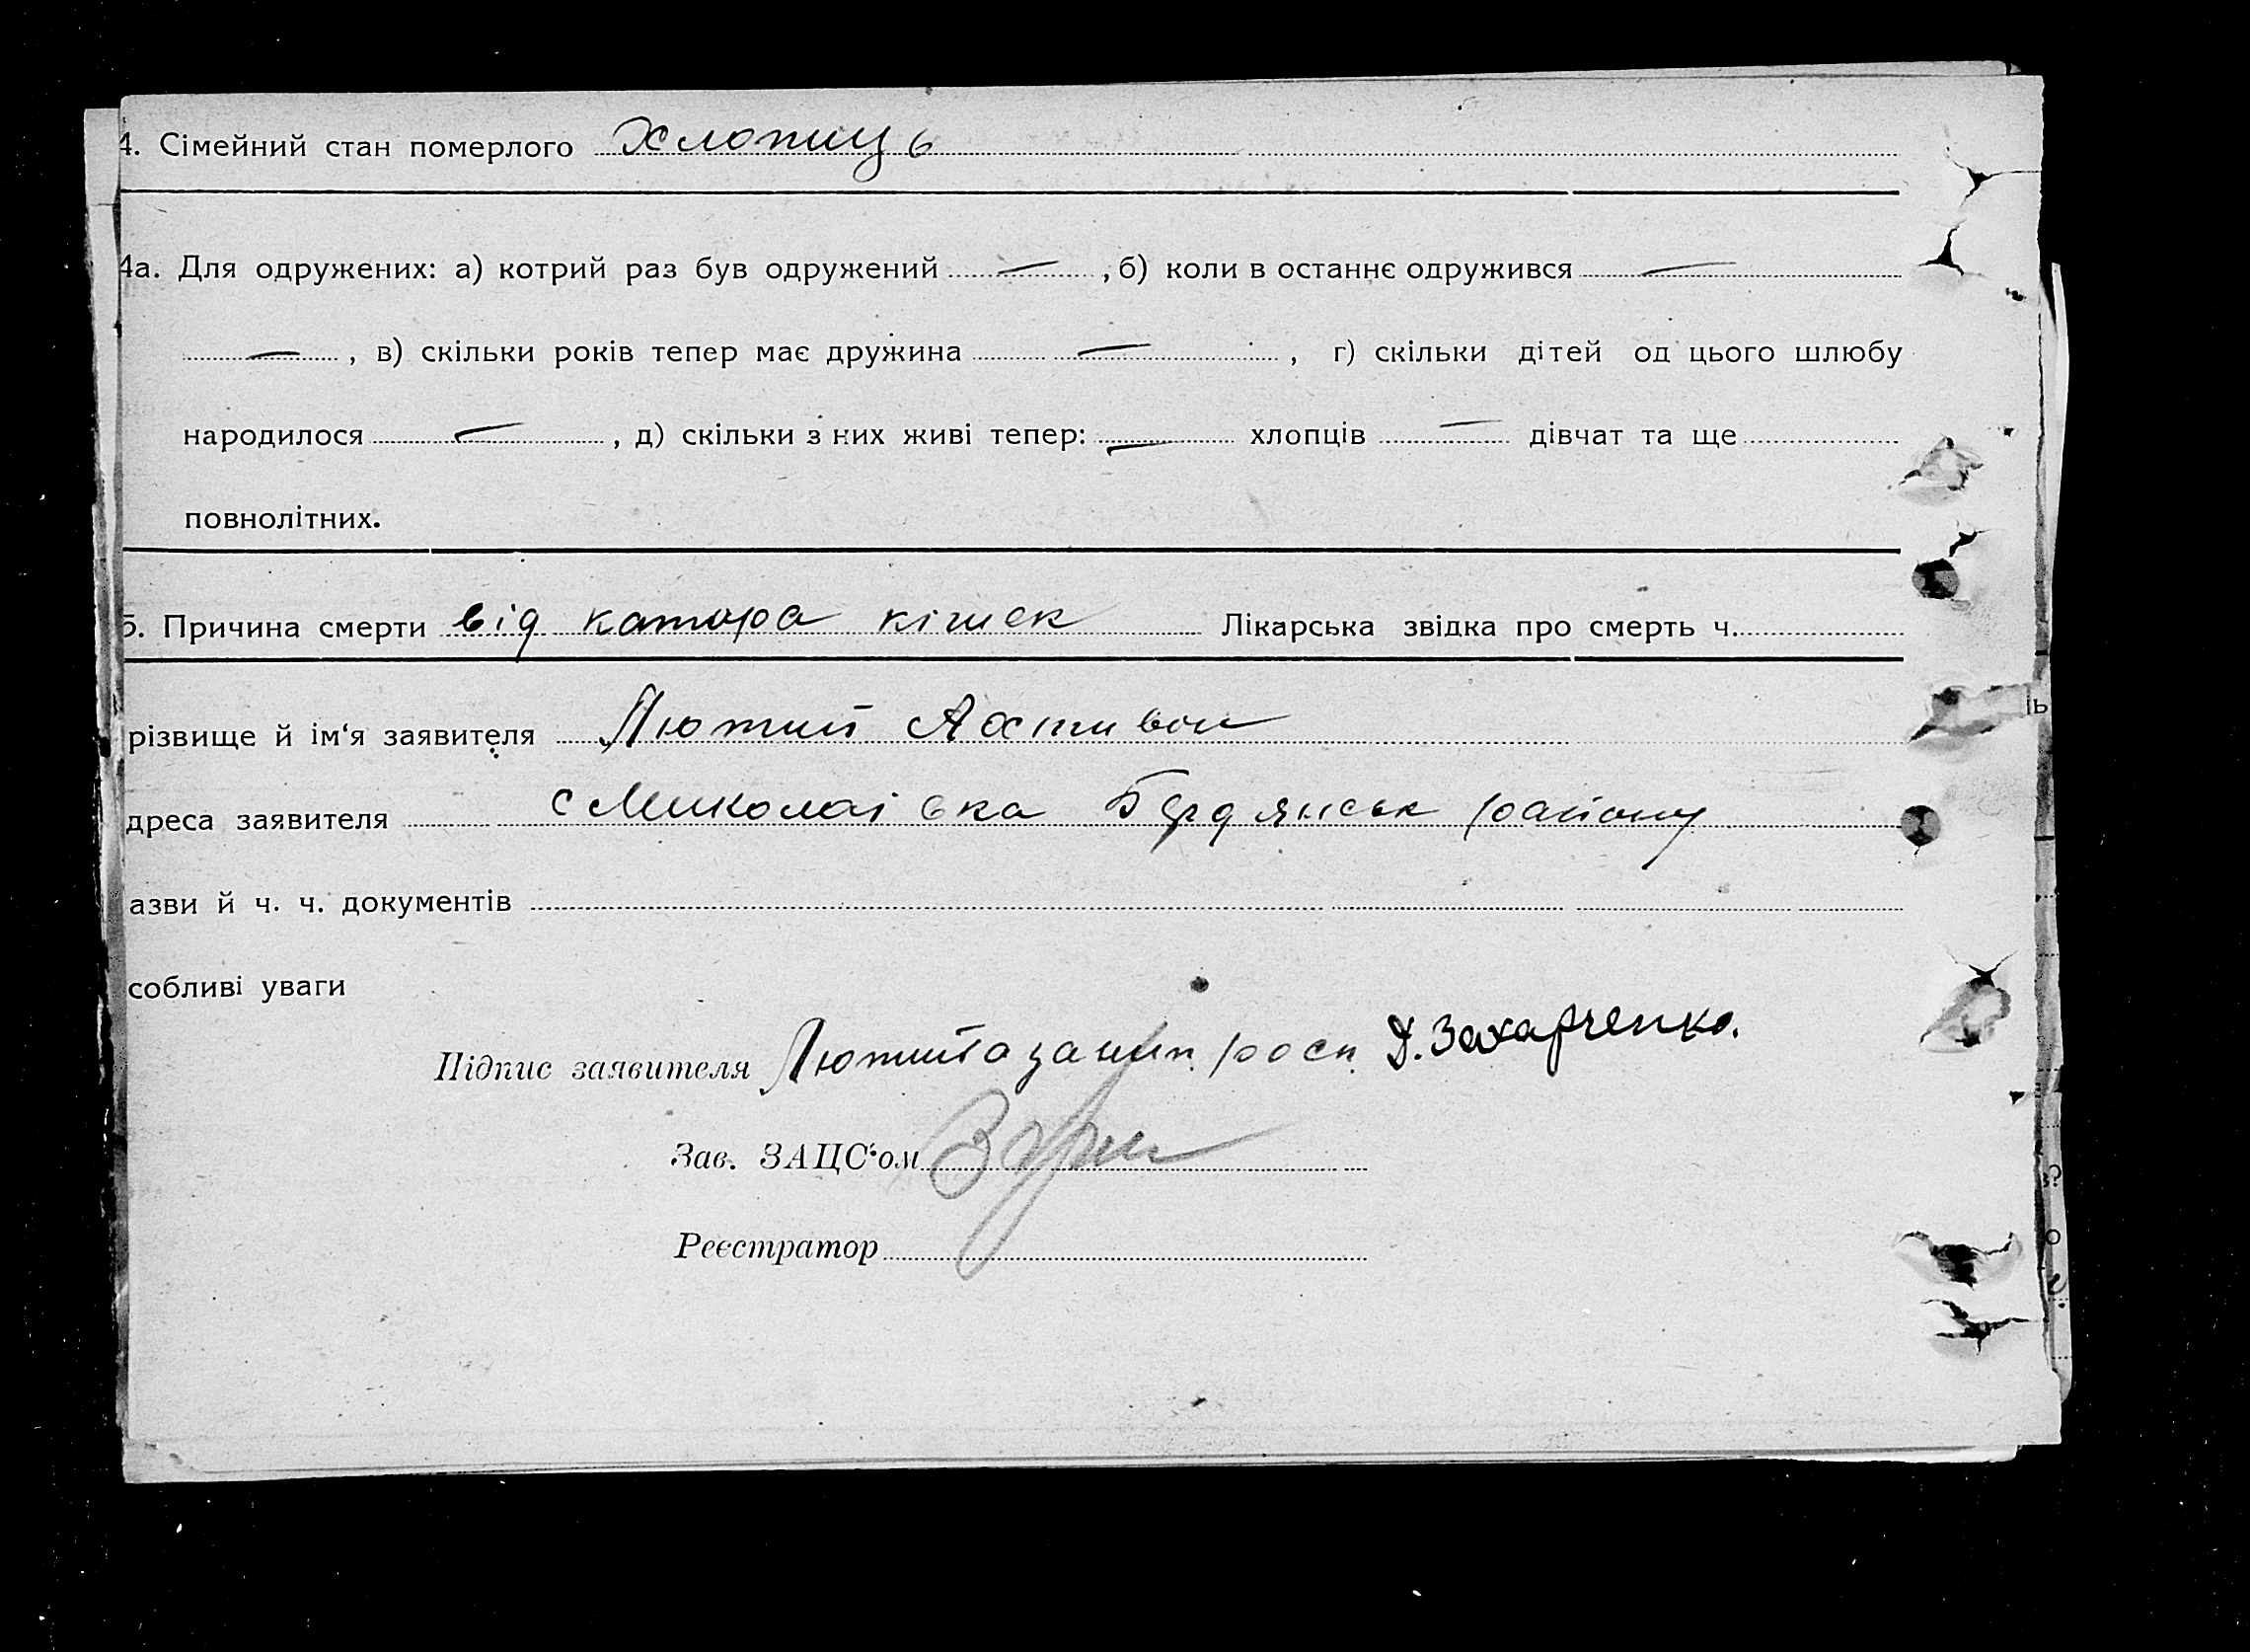 4. Сімейний стан померлого Хлопиць
4а. Для одружених: а) котрий раз був одружений — , б) коли в останнє одружився —
— , в) скільки років тепер має дружина — , г) скільки дітей од цього шлюбу
народилося — , д) скільки з них живі тепер: — хлопців — дівчат та ще
повнолітних.
5. Причина смерти від катара кішек Лікарська звідка про смерть ч.
різвище й ім'я заявителя Лютий
дреса заявителя с Миколаівка Бердянськ району
азви й ч. ч. документів
собливі уваги
Підпис заявителя Д. Захарченко.
Зав. ЗАЦС'ом
Реєстратор